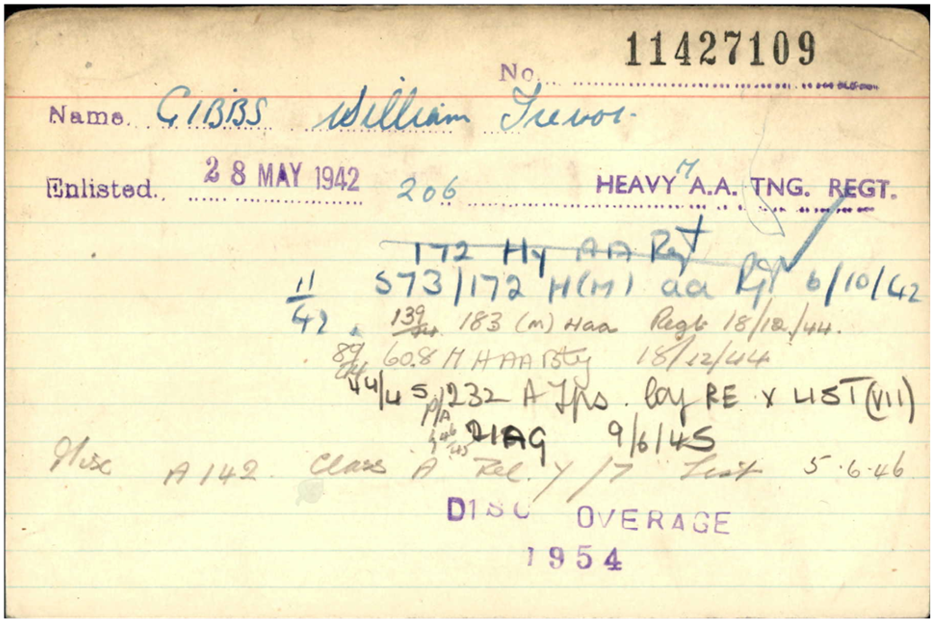 No. 11427109
Name. GIBBS William Trevor.
Enlisted. 28 MAY 1942 206 HEAVY A.A. TNG. REGT.
172 Hy AA Regt
11/42 573/172 H(M) aa Rgt 6/10/42
139/44 183 (m) Haa Regt 18/12/44.
89/44 608 M HAA Bty 18/12/44
44/45 232 A Tps. Coy RE X LIST (VII)
P/A 21AG 9/6/45
Misc A142 Class A Rel. Y/7 List 5.6.46
DISC OVERAGE
1954